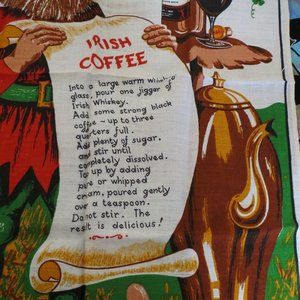 IRISH
COFFEE
Into a large warm whiskey
glass, pour one jigger of
Irish Whiskey.
Add some strong black
coffee - up to three
quarters full.
Add plenty of sugar.
and stir until
completely dissolved.
Top up by adding
pure or whipped
cream, poured gently
over a teaspoon.
Do not stir. The
result is delicious!